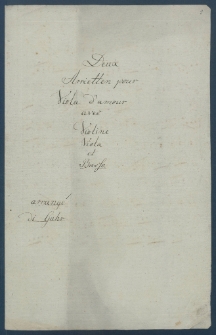 Deux
Arietten pour
Viola d'amour
avec
Violine
Viola
et
Basso
arrangé
de Guhr